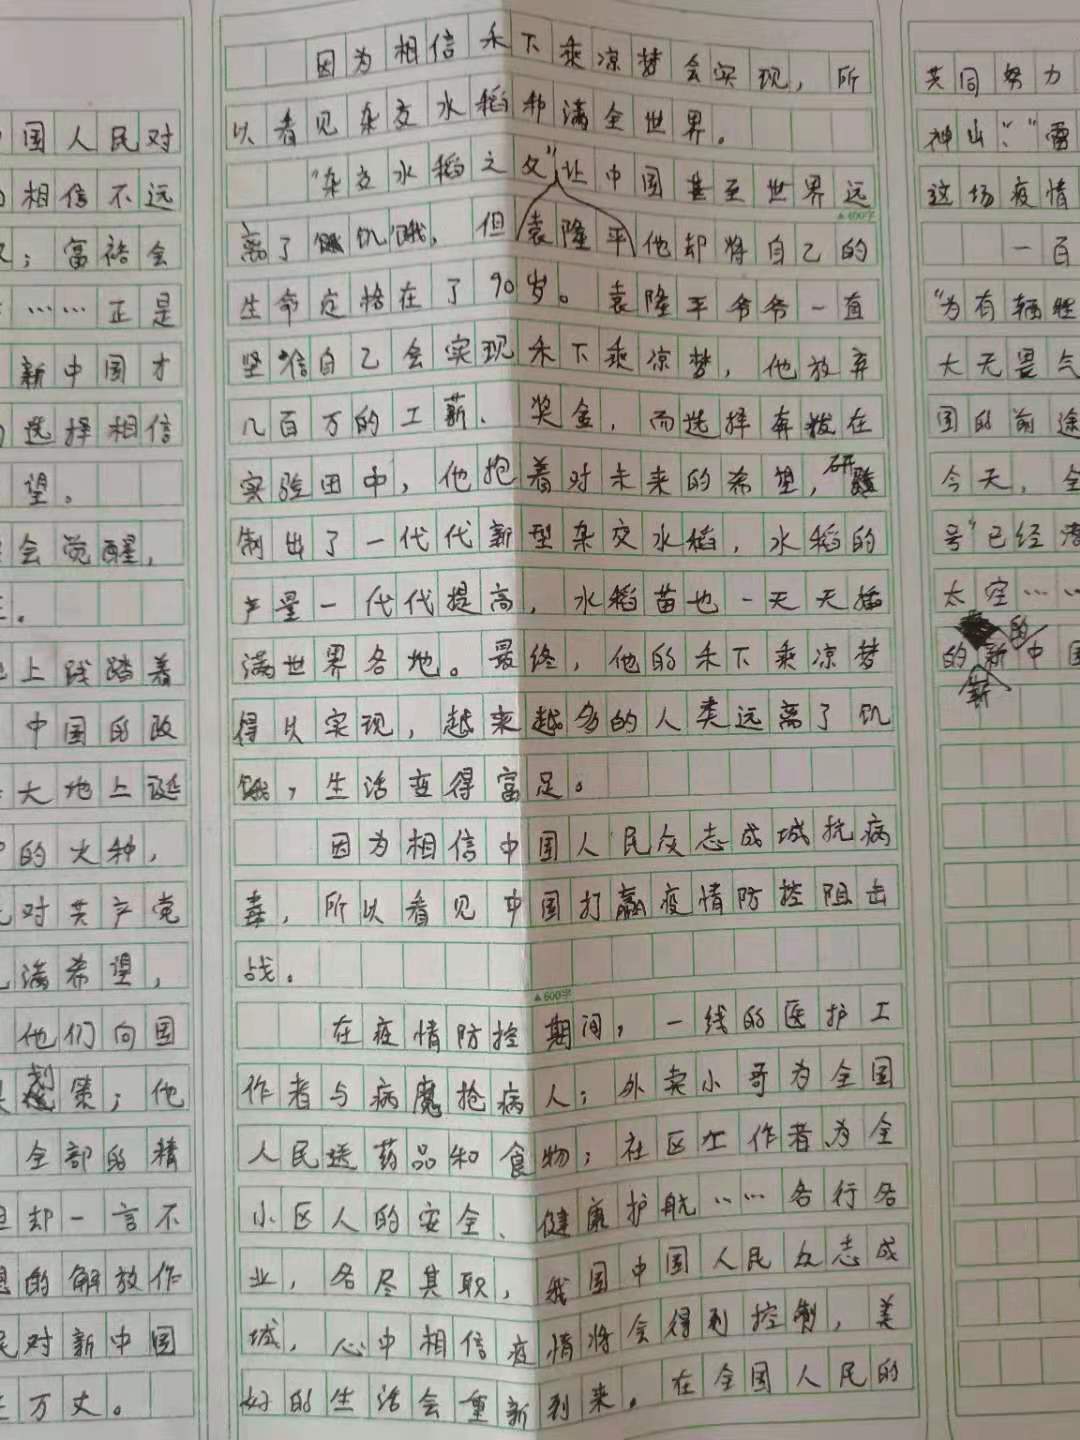 国人民对
相信不远
；富裕会
……正是
新中国才
选择相信
望。
会觉醒，
。
上践踏着
中国的政
大地上诞
的火种，
对共产党
满希望，
他们向国
划策；他
全部的精
却一言不
的解放作
民对新中国
万丈。
因为相信禾下乘凉梦会实现，所
以看见杂交水稻种满全世界。
“杂交水稻之父”袁隆平让中国甚至世界远
▲400字
离了饥饿，但他却将自己的
生命定格在了90岁。袁隆平爷爷一直
坚信自己会实现禾下乘凉梦，他放弃
几百万的工薪、奖金，而选择奔拨在
实验田中，他抱着对未来的希望，研
制出了一代代新型杂交水稻，水稻的
产量一代代提高，水稻苗也一天天插
满世界各地。最终，他的禾下乘凉梦
得以实现，越来越多的人类远离了饥
饿，生活变得富足。
因为相信中国人民众志成城抗病
毒，所以看见中国打赢疫情防控阻击
战。
▲600字
在疫情防控期间，一线的医护工
作者与病魔抢病人；外卖小哥为全国
人民送药品和食物；社区工作者为全
小区人的安全、健康护航……各行各
业，各尽其职，我国中国人民众志成
城，心中相信疫情将会得到控制，美
好的生活会重新到来。在全国人民的
共同努力
神山”、“雷
这场疫情
一百
“为有牺牲
大无畏气
国的前途
今天，全
号”已经
太空……
的新中国